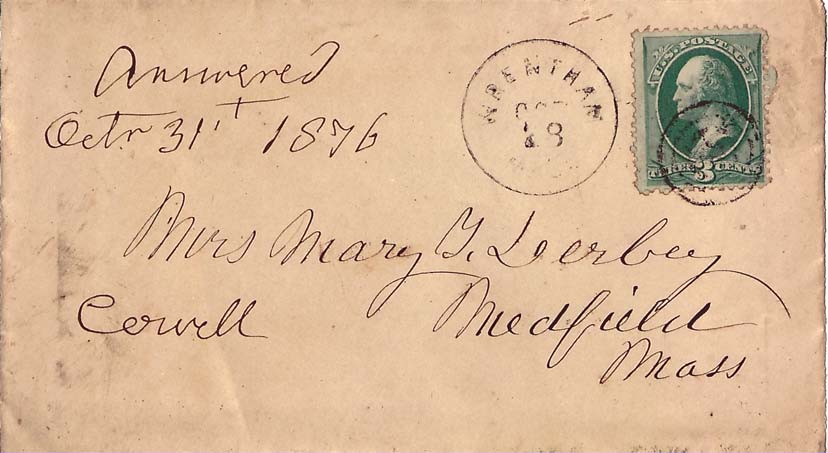 Answered
Octr 31st 1876
WRENTHAM
OCT
18
MASS
U.S. POSTAGE
THREE 3 CENTS
Mrs Mary T. Derbey
Cowell Medfield
Mass